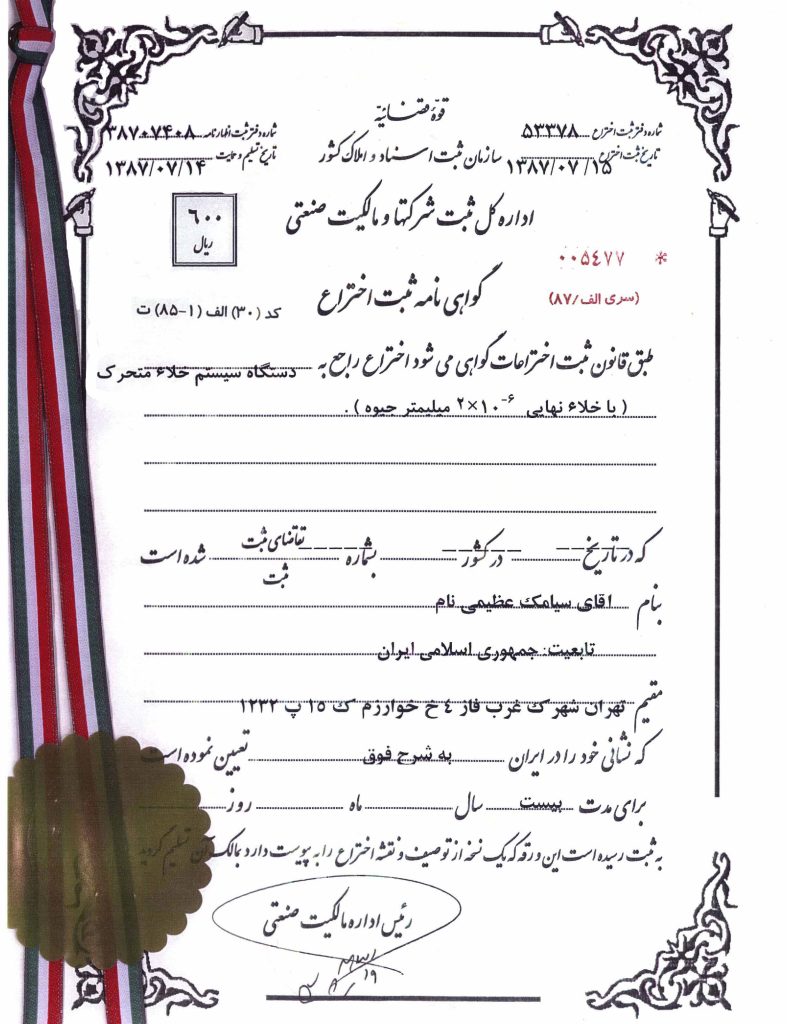 قوّهٔ قضائیّه
شماره دفتر ثبت اختراع ۵۳۳۷۸
شماره دفتر ثبت اظهارنامه ۳۸۷۰۷۴۰۸
سازمان ثبت اسناد و املاک کشور
تاریخ ثبت اختراع ۱۳۸۷/۰۷/۱۵
تاریخ تسلیم و حمایت ۱۳۸۷/۰۷/۱۴
اداره کل ثبت شرکتها و مالکیت صنعتی
۶۰۰
ریال
* ۰۰۵۴۷۷
(سری الف/۸۷)
گواهی نامه ثبت اختراع
کد (۳۰) الف (۱-۸۵) ت
طبق قانون ثبت اختراعات گواهی می شود اختراع راجع به دستگاه سیستم خلاء متحرک
( با خلاء نهایی ۲×۱۰⁻⁶ میلیمتر حیوه ) .
که در تاریخ ---- در کشور ---- بشماره ---- تقاضای ثبت شده است
ثبت
بنام اقای سیامک عظیمی نام
تابعیت: جمهوری اسلامی ایران
مقیم تهران شهرک غرب فاز ٤ خ خوارزم ک ١٥ پ ١٢٣٢
که نشانی خود را در ایران به شرح فوق تعیین نموده است
برای مدت بیست سال ماه روز
به ثبت رسیده است این ورقه که یک نسخه از توصیف و نقشه اختراع را به پیوست دارد بمالک آن تسلیم گردید
رئیس اداره مالکیت صنعتی